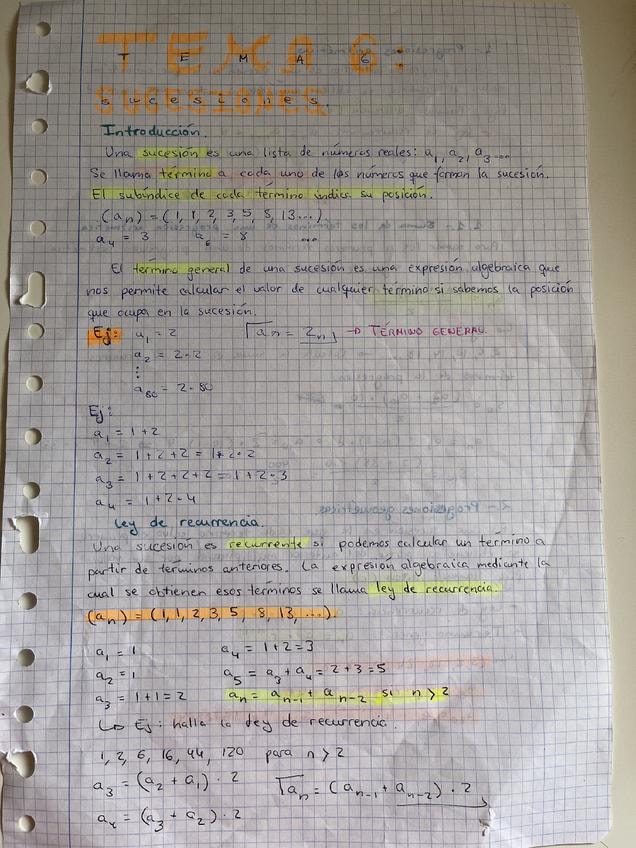 TEMA 6:
SUCESIONES
sucesiones.
Introducción.
Una sucesión es una lista de números reales: a₁, a₂, a₃ ....
Se llama término a cada uno de los números que forman la sucesión.
El subíndice de cada término indica su posición.
(aₙ) = (1, 1, 2, 3, 5, 8, 13...)
a₄ = 3 a₆ = 8 ...
El término general de una sucesión es una expresión algebraica que
nos permite calcular el valor de cualquier término si sabemos la posición
que ocupa en la sucesión.
Ej: a₁ = 2 aₙ = 2ₙ → TÉRMINO GENERAL.
a₂ = 2·2
⋮
a₈₀ = 2·80
Ej:
a₁ = 1+2
a₂ = 1+2+2 = 1+2·2
a₃ = 1+2+2+2 = 1+2·3
a₄ = 1+2·4
Ley de recurrencia.
Una sucesión es recurrente si podemos calcular un término a
partir de términos anteriores. La expresión algebraica mediante la
cual se obtienen esos términos se llama ley de recurrencia.
(aₙ) = (1, 1, 2, 3, 5, 8, 13, ...).
a₁ = 1 a₄ = 1+2=3
a₂ = 1 a₅ = a₃ + a₄ = 2+3=5
a₃ = 1+1=2 aₙ = aₙ₋₁ + aₙ₋₂ si n > 2
↳ Ej: halla la ley de recurrencia.
1, 2, 6, 16, 44, 120 para n > 2
a₃ = (a₂ + a₁) · 2 aₙ = (aₙ₋₁ + aₙ₋₂) · 2
a₄ = (a₃ + a₂) · 2